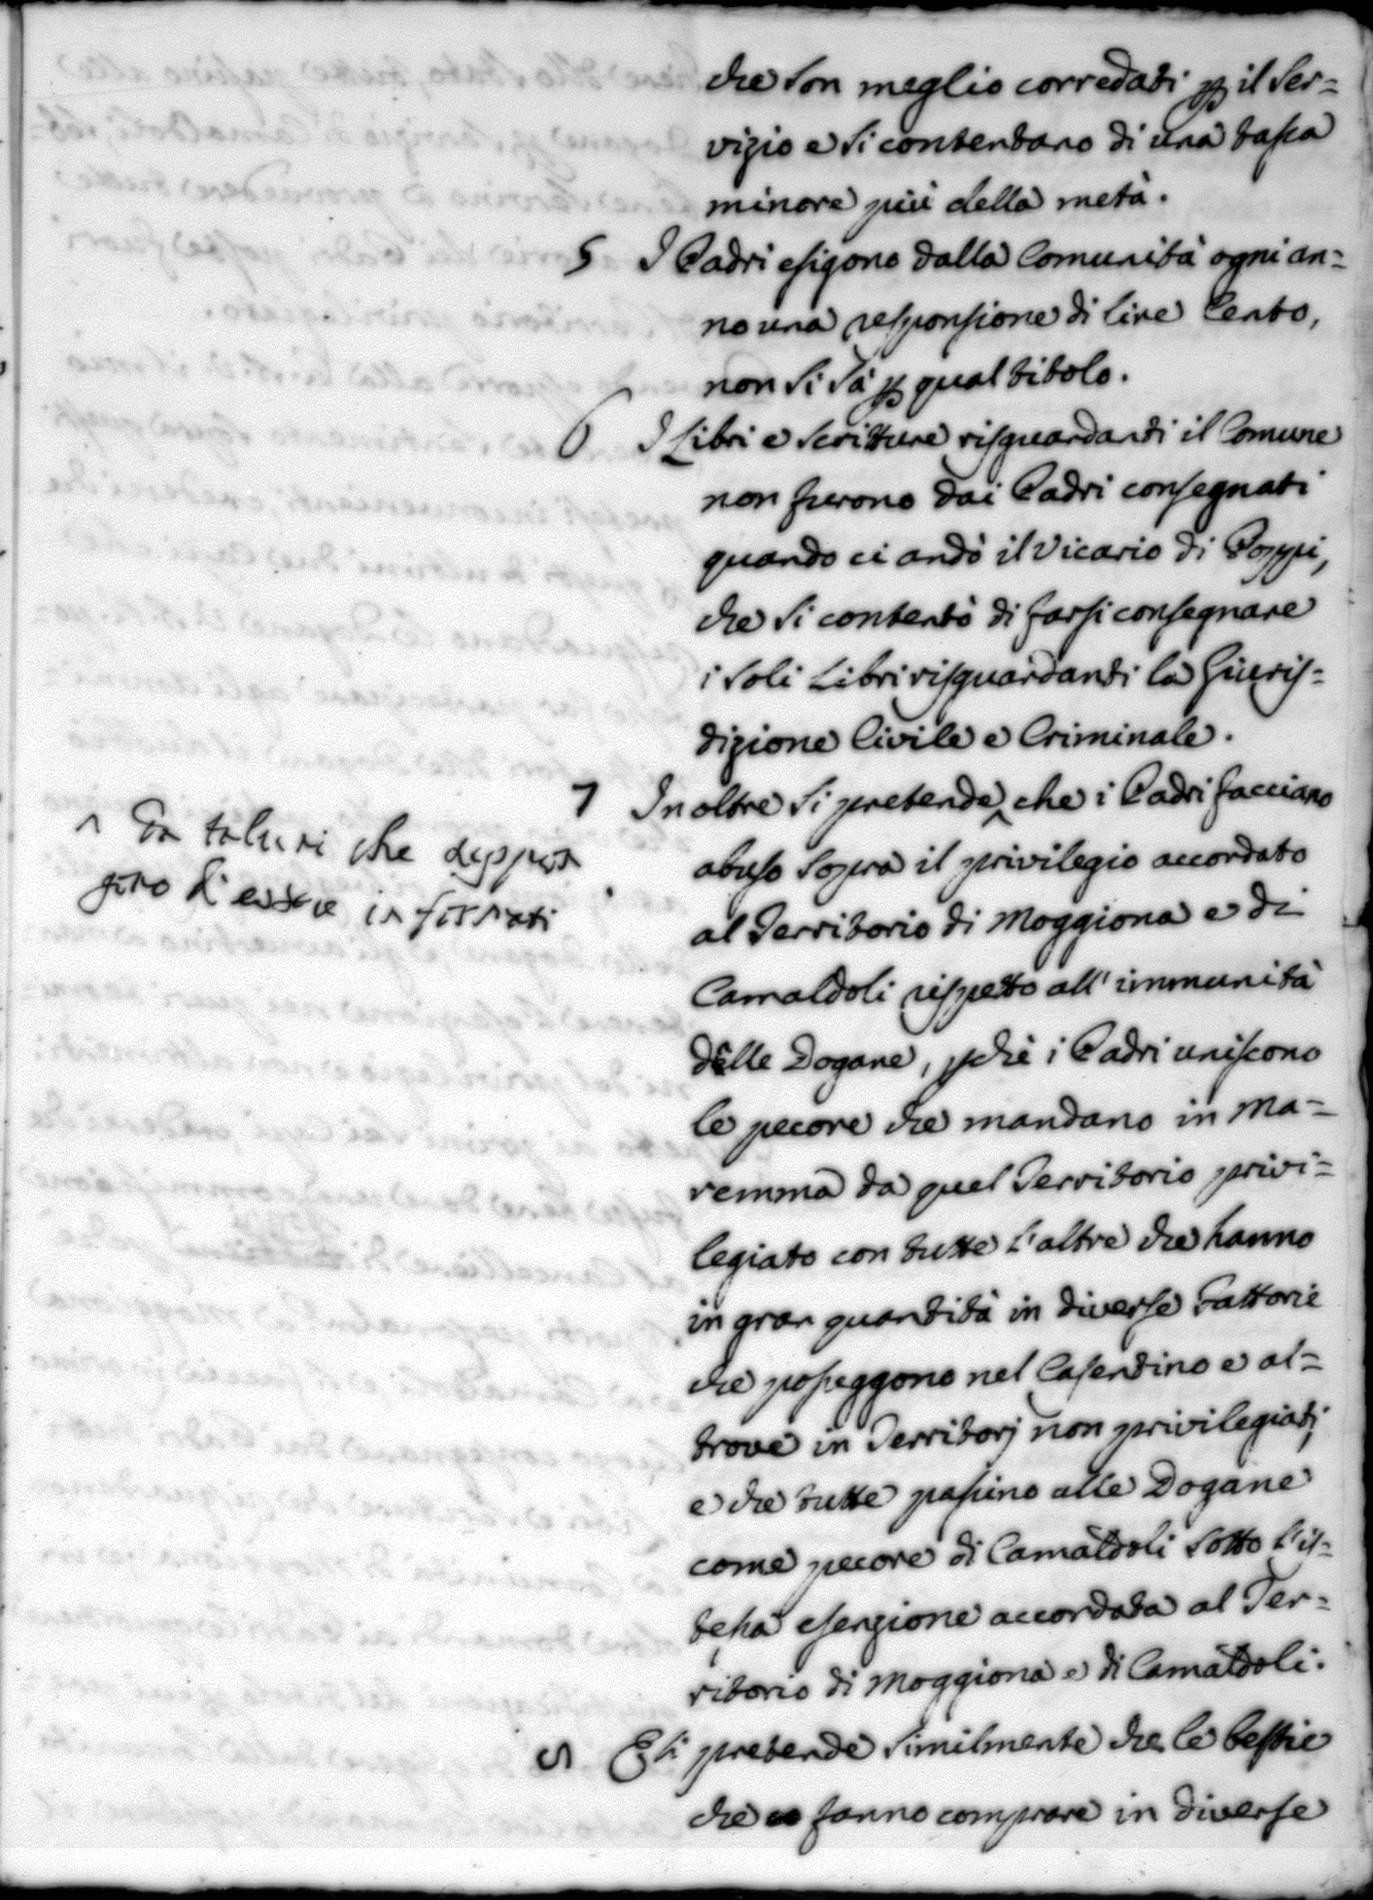 che son meglio corredati p il ser=
vizio e si contentano di una tassa
minore più della metà.
5 I Padri esigono dalla Comunità ogni an=
no una responsione di lire Cento,
non si sà p qual titolo.
6 I Libri e Scritture risguardanti il Comune
non furono dai Padri consegnati
quando ci andò il Vicario di Poppi,
che si contentò di farsi consegnare
i soli Libri risguardanti la Giuris=
dizione Civile e Criminale.
7 In oltre si pretende ^ che i Padri facciano
^ da taluni che
d'essere informati
abuso sopra il privilegio accordato
al Territorio di Moggiona e di
Camaldoli rispetto all' immunità
delle Dogane, pchè i Padri uniscono
le pecore che mandano in Ma=
remma da quel Territorio privi=
legiato con tutte l'altre che hanno
in gran quantità in diverse Fattorie
che posseggono nel Casentino e al=
trove in Territorj non privilegiati,
e che tutte passino alle Dogane
come pecore di Camaldoli sotto l'is=
tessa esenzione accordata al Ter=
ritorio di Moggiona e di Camaldoli.
pretende similmente che le bestie
che fanno comprare in diverse